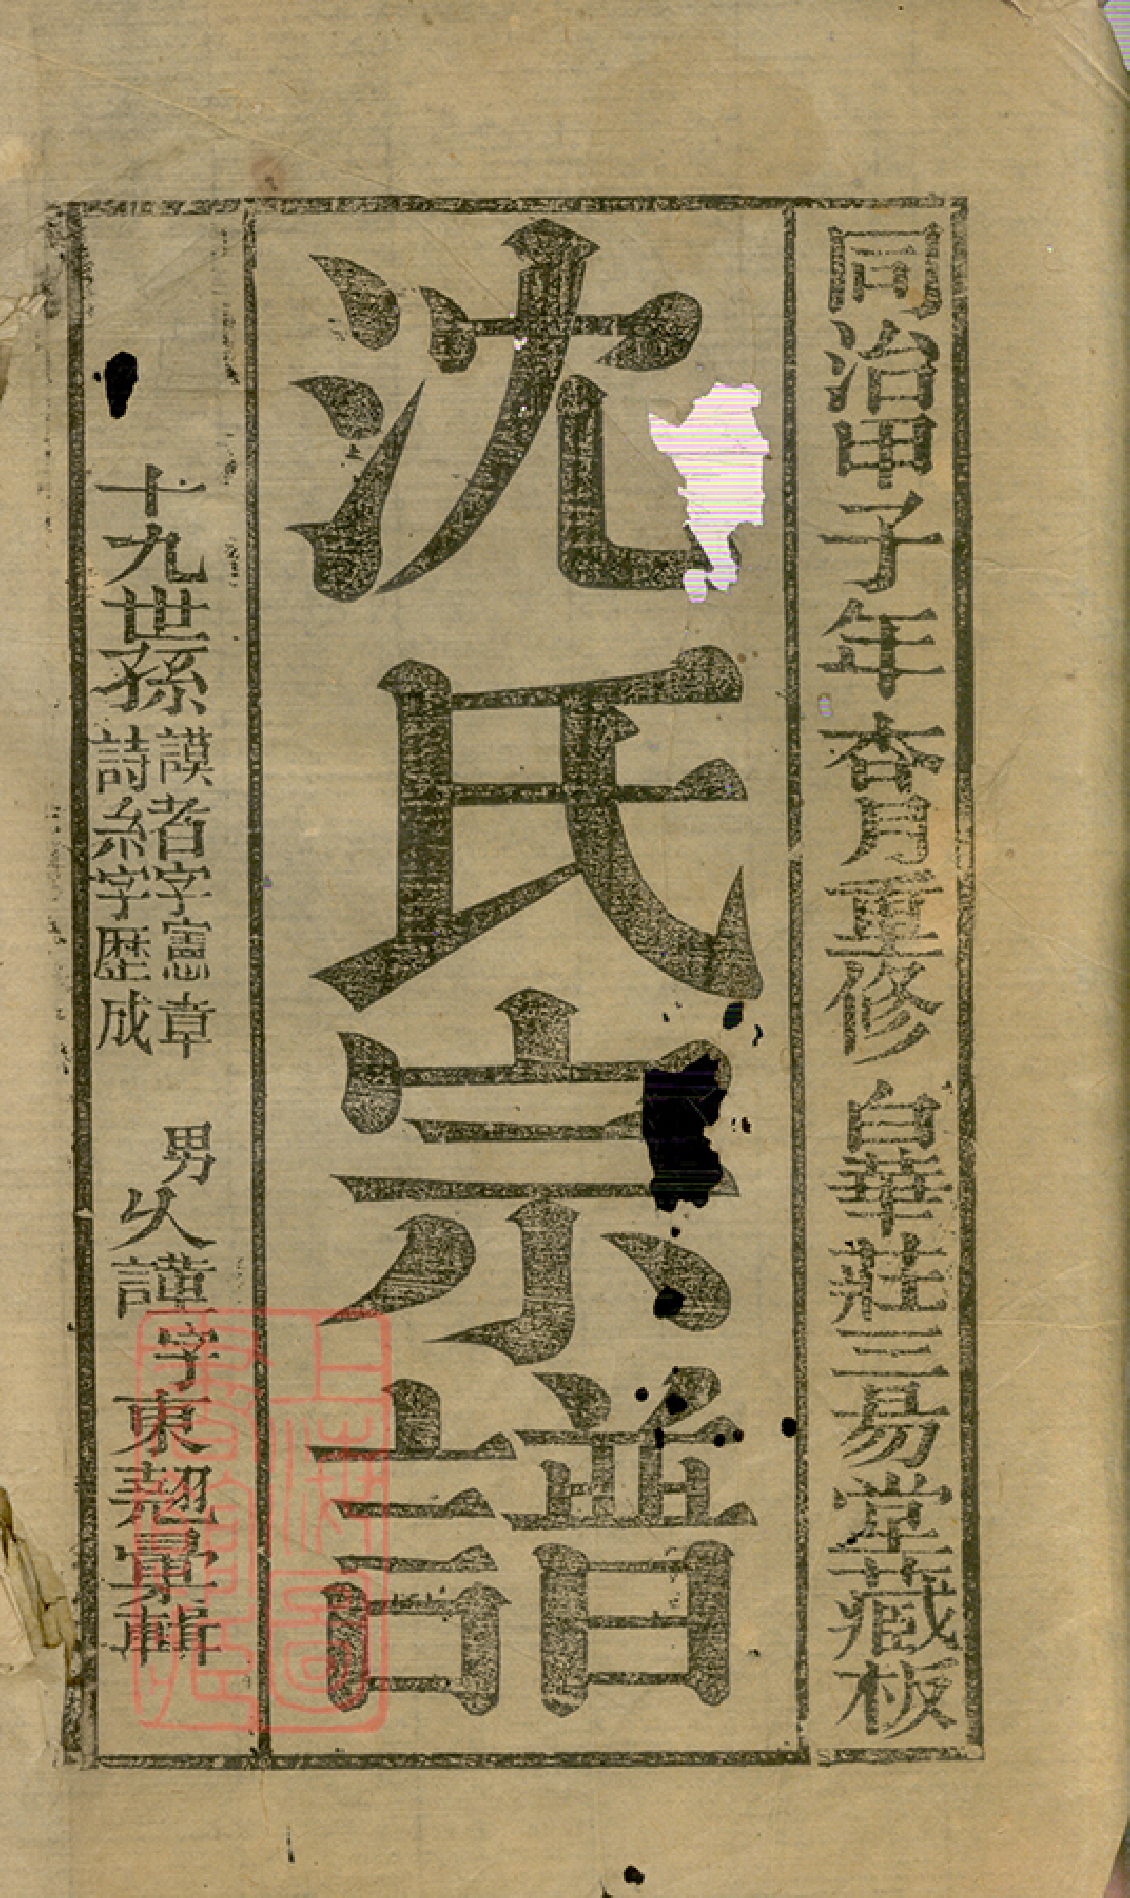 同治甲子年杏月重修 白華莊三易堂藏板
沈氏宗譜
十九世孫
謨者字憲章
詩糸字歷成
男 謹字東翹彙輯